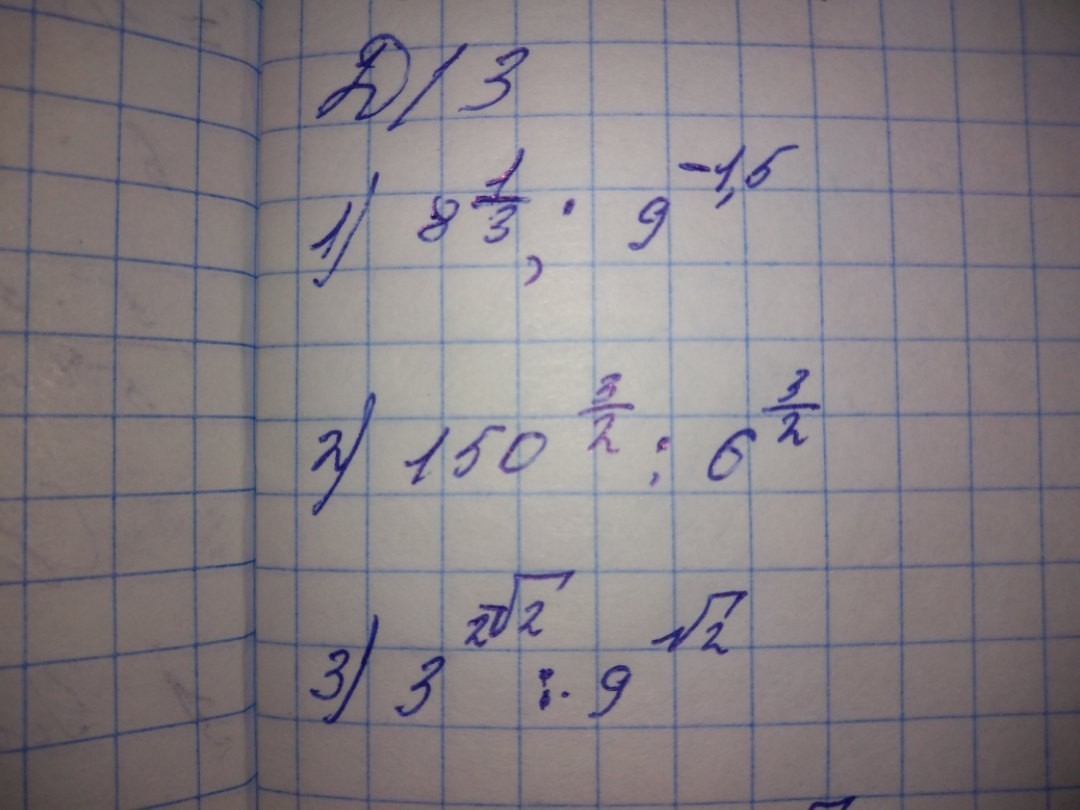 Д/З
1) 8^{\frac{1}{3}} · 9^{-1,5}
2) 150^{\frac{3}{2}} : 6^{\frac{3}{2}}
3) 3^{2\sqrt{2}} : 9^{\sqrt{2}}